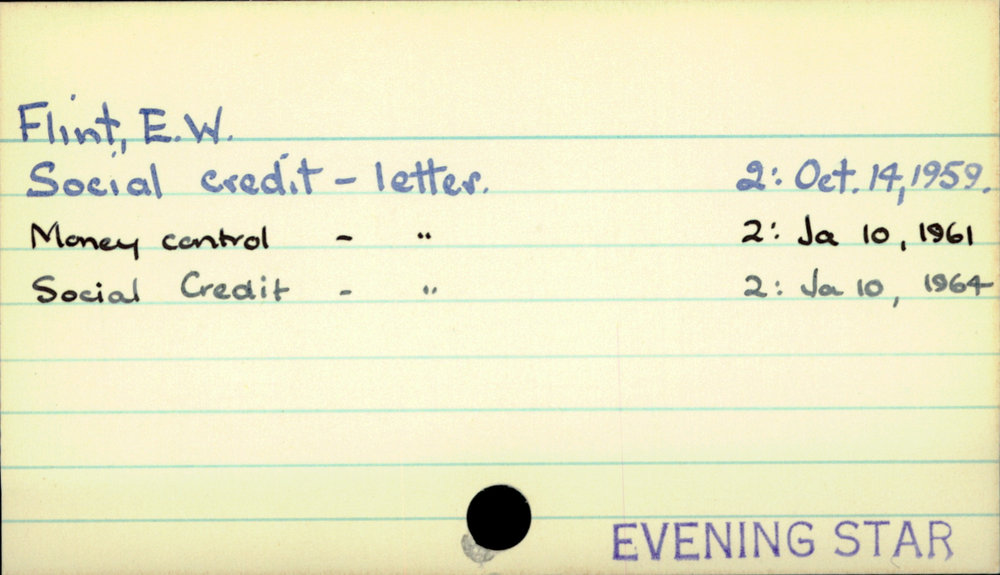 Flint, E.W.
Social credit - letter. 2: Oct. 14, 1959.
Money control - " 2: Ja 10, 1961
Social Credit - " 2: Ja 10, 1964
EVENING STAR